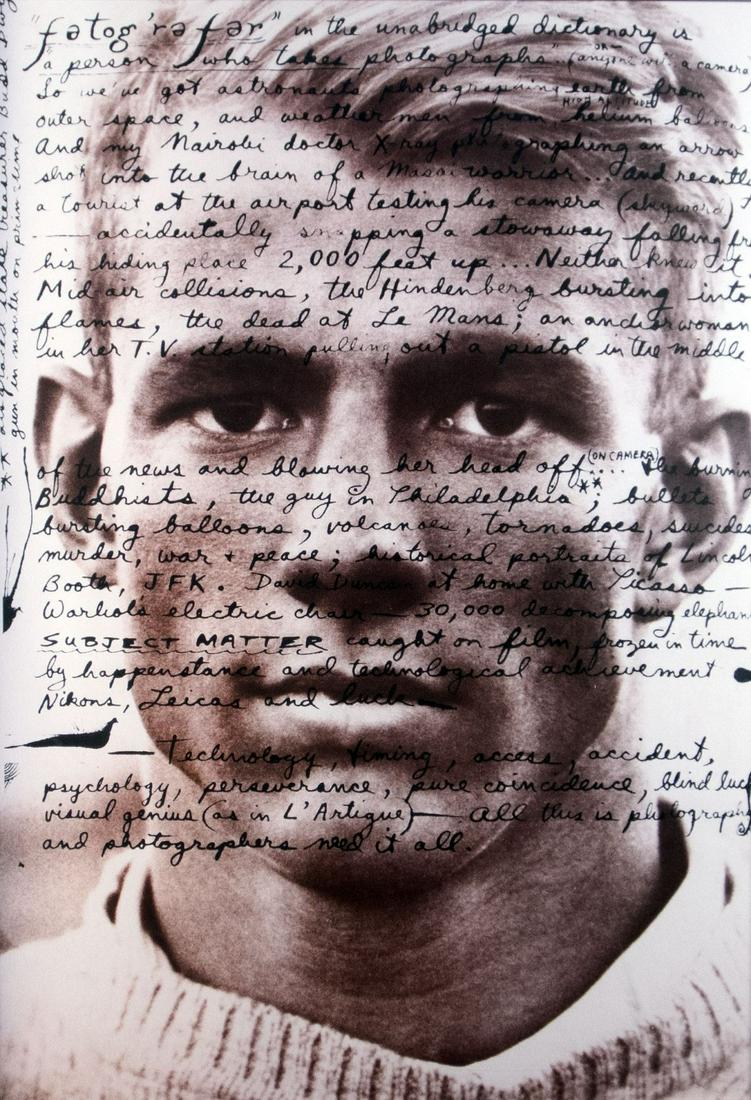 "fətog'rə fər" in the unabridged dictionary is
"a person who takes photographs" (OR anyone with a camera)
So we've got astronauts photographing earth from
HIGH ALTITUDE
outer space, and weather men from helium balloons
And my Nairobi doctor X-ray photographing an arrow
shot into the brain of a Masai warrior... and recently
a tourist at the airport testing his camera (skyward)
— accidentally snapping a stowaway falling fr
his hiding place 2,000 feet up... Neither knew it
Mid-air collisions, the Hindenberg bursting into
flames, the dead at Le Mans; an anchorwoman
in her T.V. station pulling out a pistol in the middle
of the news and blowing her head off (ON CAMERA).... the burnin
Buddhists, the guy in Philadelphia **; bullets
bursting balloons, volcanoes, tornadoes, suicides
murder, war + peace; historical portraits of Lincol
Booth, JFK. David Duncan at home with Picasso —
Warhol's electric chair — 30,000 decomposing elephan
SUBJECT MATTER caught on film, frozen in time
by happenstance and technological achievement
Nikons, Leicas and luck —
— Technology, timing, access, accident,
psychology, perseverance, pure coincidence, blind luck
visual genius (as in L'Artigue) — All this is photography
and photographers need it all.
** disgraced state treasurer Budd Dwy
gun in mouth on prim-time